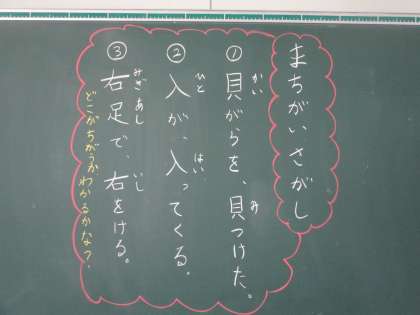 まちがいさがし
①貝がらを、貝つけた。
かい み
②入が、入ってくる。
ひと はい
③右足で、右をける。
みぎあし いし
どこがちがうかわかるかな？